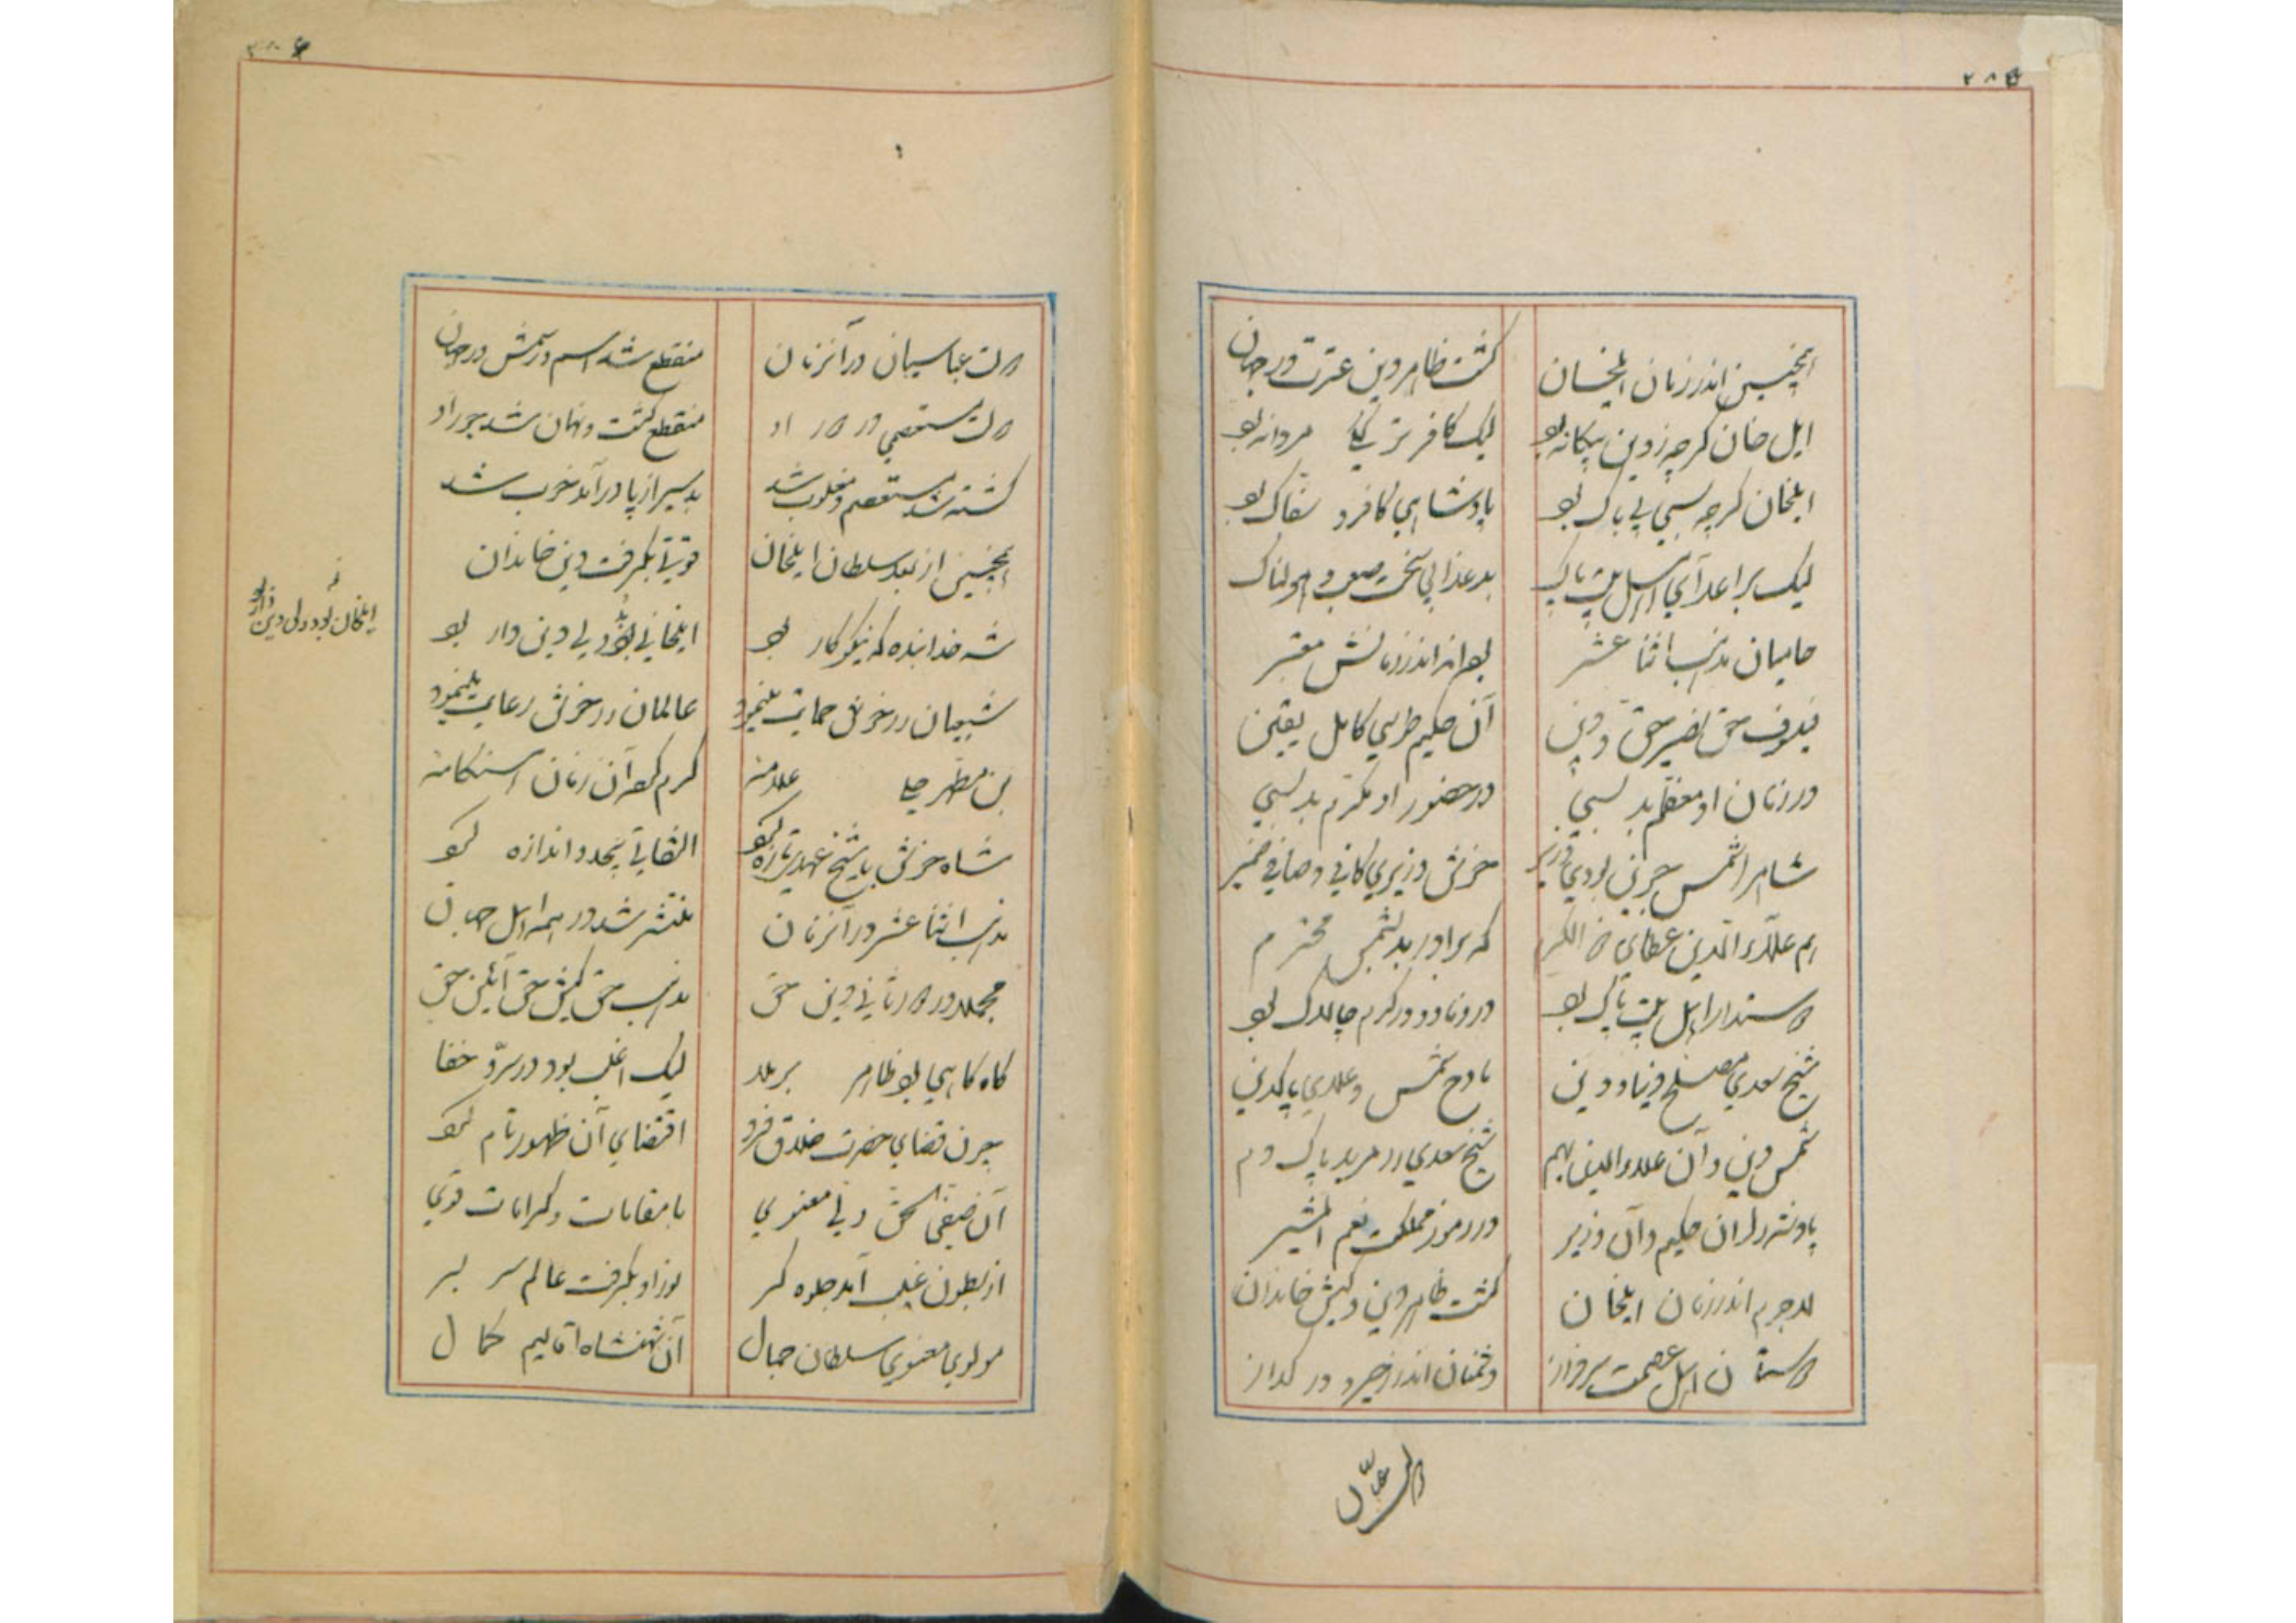 ۲۸۵
انچنین اندر زمان ایلخان
گشت ظاهر دین عترت در جهان
ایل خان گرچه ز دین بیگانه بود
لیک کافر ترکی مردانه بود
ایلخان گرچه بسی بی باک بود
پادشاهی کافر و سفاک بود
لیک بر اعدآی اهل بیت پاک
بد عذابی سخت صعب و هولناک
حامیان مذهب اثنا عشر
بودند اندر زمانش معتبر
فیلسوف حق نصیر حق و دین
آن حکیم طوسی کامل یقین
در زمان او معظم بد بسی
در حضور او مکرم بد بسی
شاه را شمس جوینی بودی وزیر
خوش وزیری کافی و صافی ضمیر
هم علآء الدین عطای ذو الکرم
که برادر بد بشمس محترم
دوستدار اهل بیت پاک بود
در وفا و در کرم چالاک بود
شیخ سعدی مصلح دنیا و دین
مادح شمس و علای پاکدین
شمس دین و آن علاء الدین بهم
شیخ سعدی را مرید پاک دم
پادشه را آن حکیم و آن وزیر
در رموز مملکت نعم المشیر
لاجرم اندر زمان ایلخان
گشت ظاهر دین و کیش خاندان
دوستان اهل عصمت سرفراز
دشمنان اندر زحیر و در گداز
دولت عباسیان
دولت عباسیان در آنزمان
منقطع شد اسم و رسمش در جهان
دولت مستعصمی در دور او
منقطع گشت و نهان شد جور او
کشته شد مستعصم و مغلوب شد
بد سیر از پا درآمد خوب شد
انچنین از بعد سلطان ایلخان
قوتی بگرفت دین خاندان
شه خدابنده که نیکوکار بود
ایلخانی بود ولی دین دار بود
ایلخان بود ولی دین دار بود
شیعیان را خوش حمایت مینمود
عالمان را خوش رعایت مینمود
بن مطهر حلی علامه
گرم کرد آن زمان هنگامه
شاه خوش با شیخ عهدی تازه نمود
التفاتی بیحد و اندازه نمود
مذهب اثنا عشر در آنزمان
منتشر شد در همه اهل جهان
مجملا در دور ثانی دین حق
مذهب حق کیش حق آئین حق
گاه گاهی بود ظاهر بر ملا
لیک اغلب بود در سر و خفا
چون قضای حضرت خلاق فرد
اقتضای آن ظهور تام نمود
آن صفی الحق ولی معنوی
با مقامات و کرامات قوی
از بطون غیب آمد جلوه گر
نور او بگرفت عالم سر بسر
مولوی معنوی سلطان جمال
آن شهنشاه اقالیم کمال